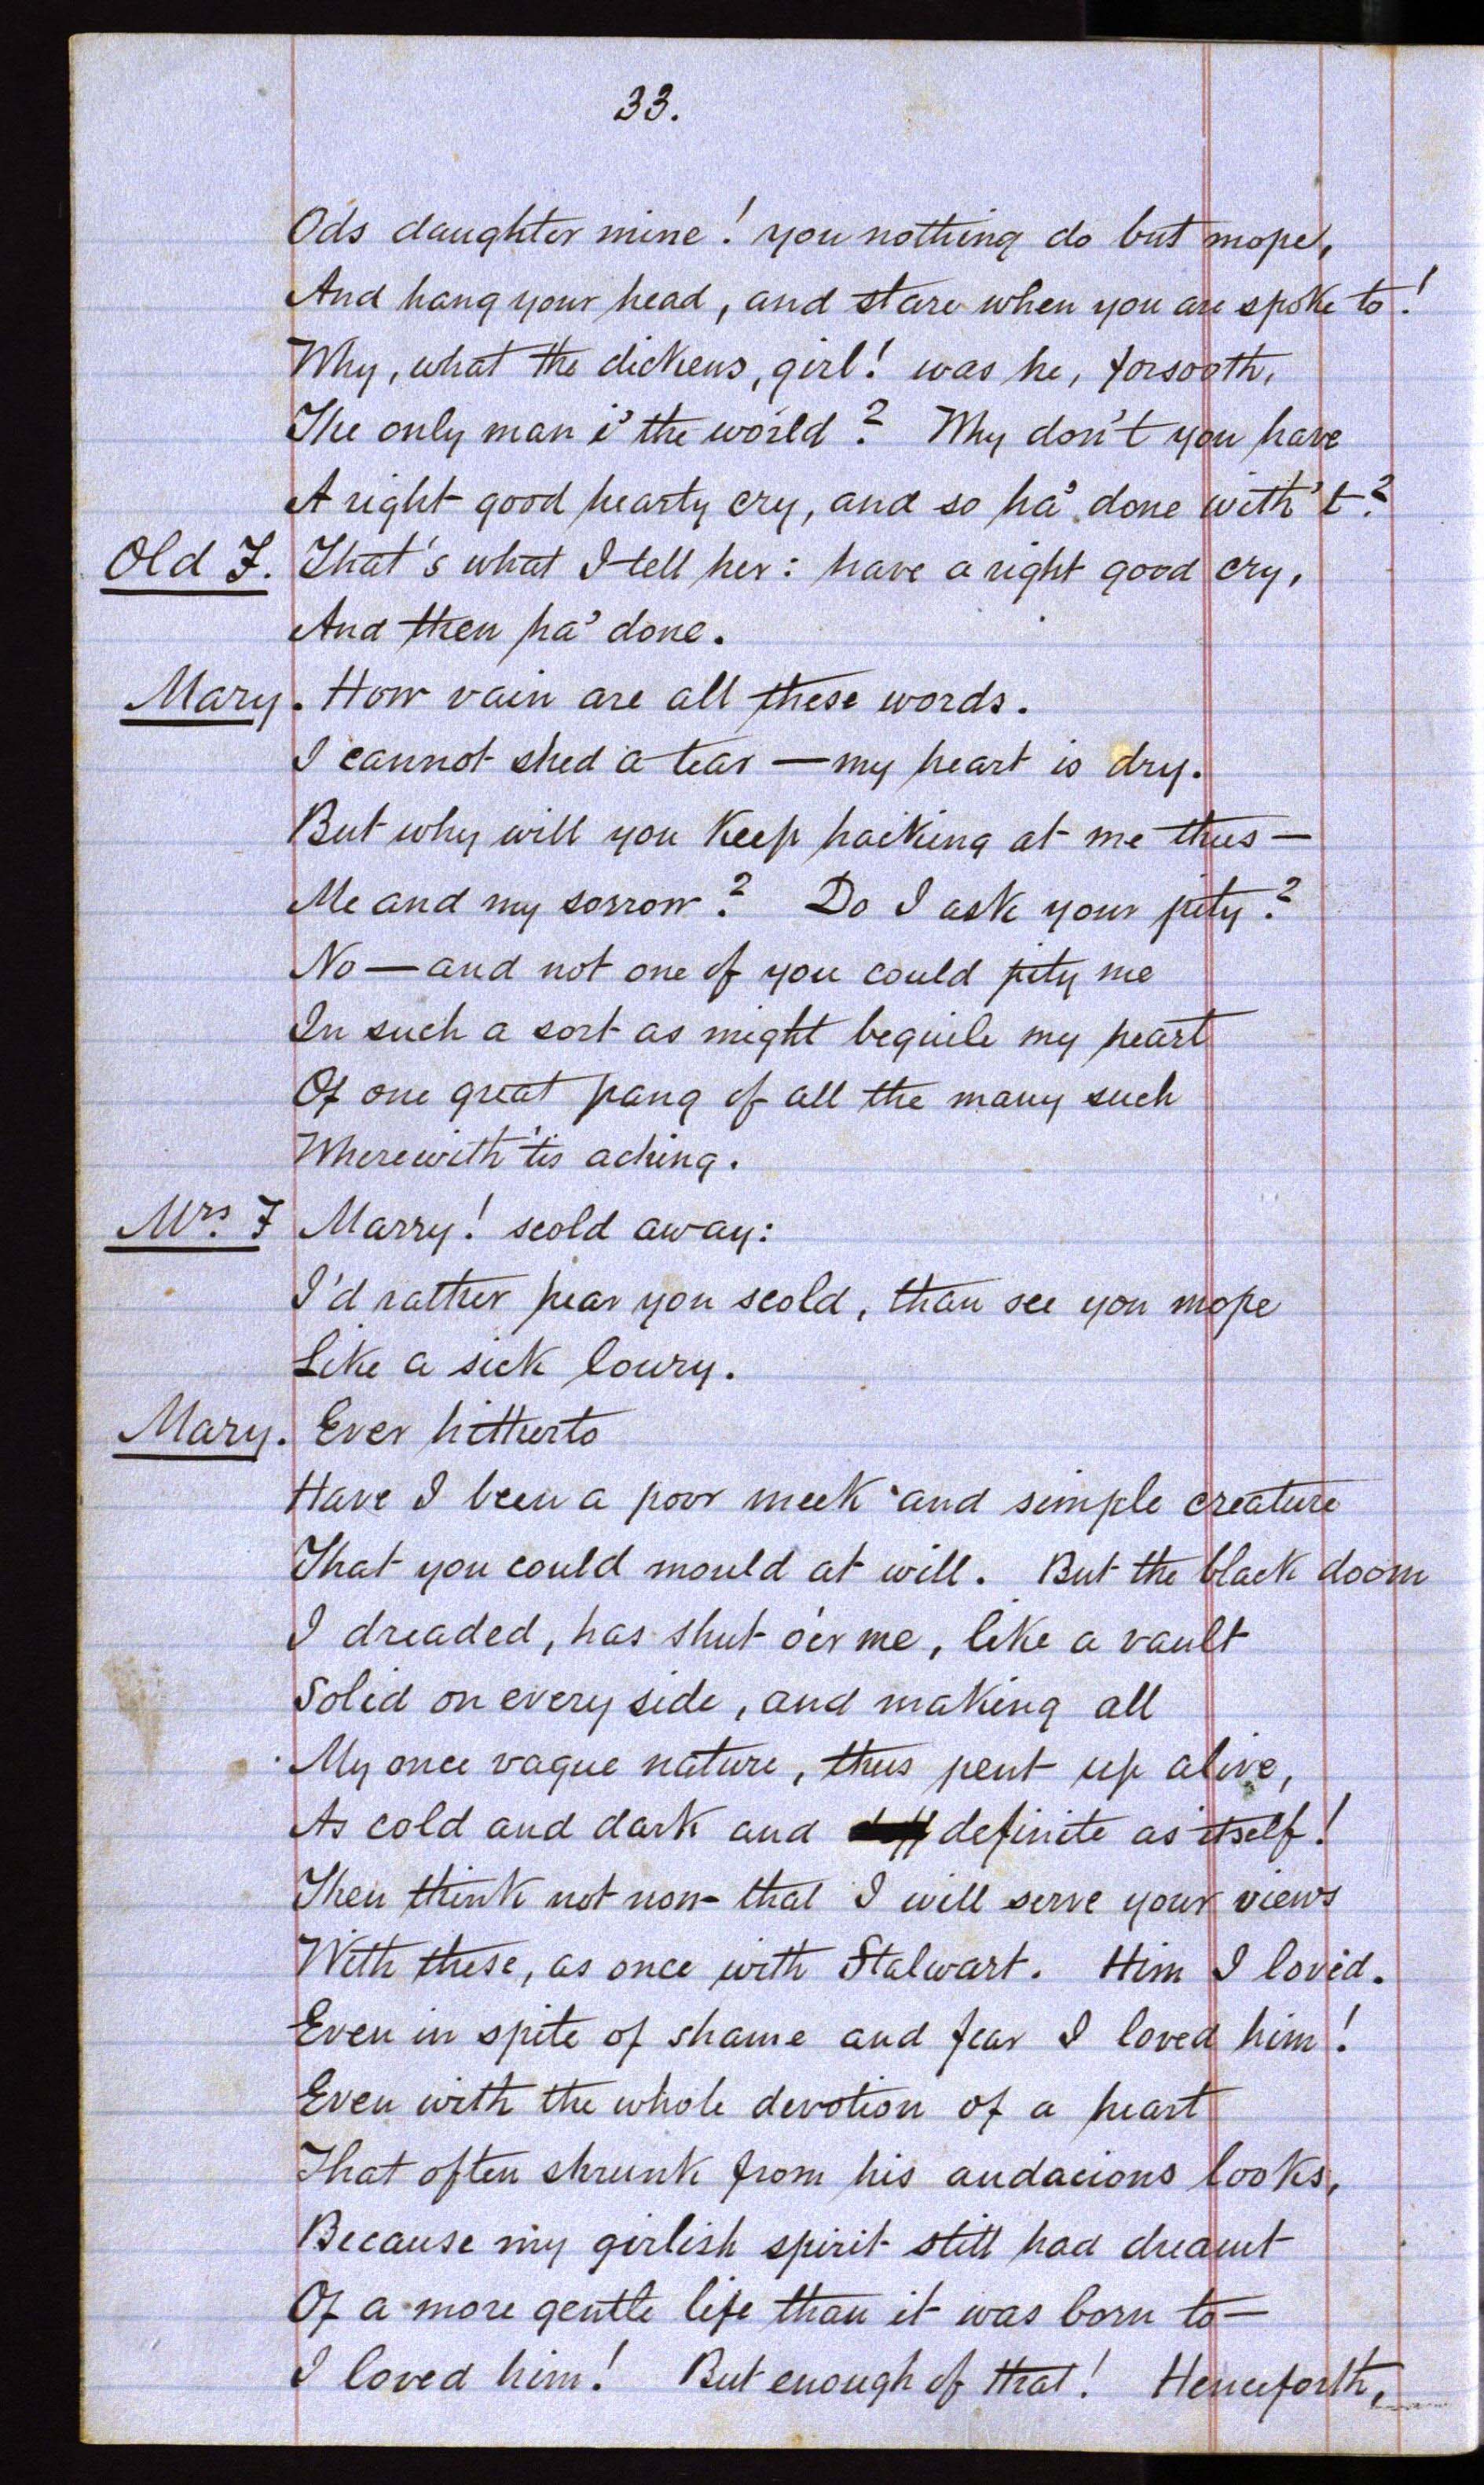 33.
Ods daughter mine! you nothing do but mope,
And hang your head, and stare when you are spoke to!
Why, what the dickens, girl! was he, forsooth,
The only man i' the world? Why don't you have
A right good hearty cry, and so ha' done with't?
Old F. That's what I tell her: have a right good cry,
And then ha' done.
Mary. How vain are all these words.
I cannot shed a tear — my heart is dry.
But why will you keep haiking at me thus —
Me and my sorrow? Do I ask your pity?
No — and not one of you could pity me
In such a sort as might beguile my heart
Of one great pang of all the many such
Wherewith 'tis aching.
Mrs. F Marry! scold away:
I'd rather hear you scold, than see you mope
Like a sick lowry.
Mary. Ever hitherto
Have I been a poor meek and simple creature
That you could mould at will. But the black doom
I dreaded, has shut o'er me, like a vault
Solid on every side, and making all
My once vague nature, thus pent up alive,
As cold and dark and definite as itself!
Then think not now that I will serve your views
With these, as once with Stalwart. Him I loved.
Even in spite of shame and fear I loved him!
Even with the whole devotion of a heart
That often shrunk from his audacious looks,
Because my girlish spirit still had dreamt
Of a more gentle life than it was born to —
I loved him! But enough of that! Henceforth,